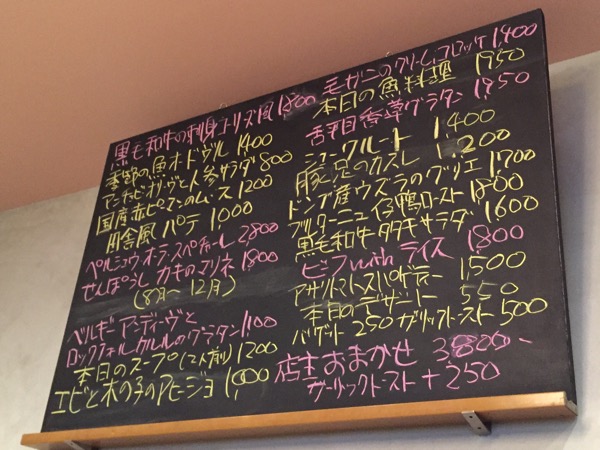 黒毛和牛の刺身ニース風 1800
季節の魚オードヴル 1400
アンチョビガーリック人参サラダ 800
国産赤ピーマンのムース 1200
田舎風パテ 1,000
ペルシュウ オーラ・スペチャーレ 2,800
せんぽうし カキのマリネ 1,800
(8月〜12月)
ベルギー アンディーヴと
ロックフォールカルルのグラタン 1,100
本日のスープ(二人前) 1200
エビと木の子のアヒージョ 1,000
毛ガニのクリームコロッケ 1,400
本日の魚料理 1950
舌平目香草グラタン 1,950
シュークルート 1,400
豚足のカスレ 1,200
ドンブ産ウズラのグリエ 1,700
ブルターニュ仔鴨ロースト 1800
黒毛和牛タタキサラダ 1600
ビフwithライス 1,800
アサリトマトスパゲティー 1,500
本日のデザート 550
バゲット 250 ガーリックトースト 500
店主おまかせ 3800〜
ガーリックトースト+250